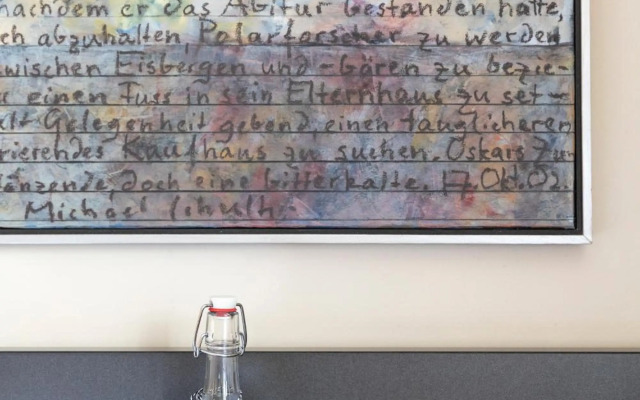 nachdem er das Abitur bestanden hatte,
ch abzuhalten, Polarforscher zu werden
wischen Eisbergen und -bären zu bezie-
r einen Fuss in sein Elternhaus zu set-
Gelegenheit gebend, einen tauglicheren
rierendes Kaufhaus zu suchen. Oskars Zu
länzende, doch eine bitterkalte. 17. Okt. 02.
Michael